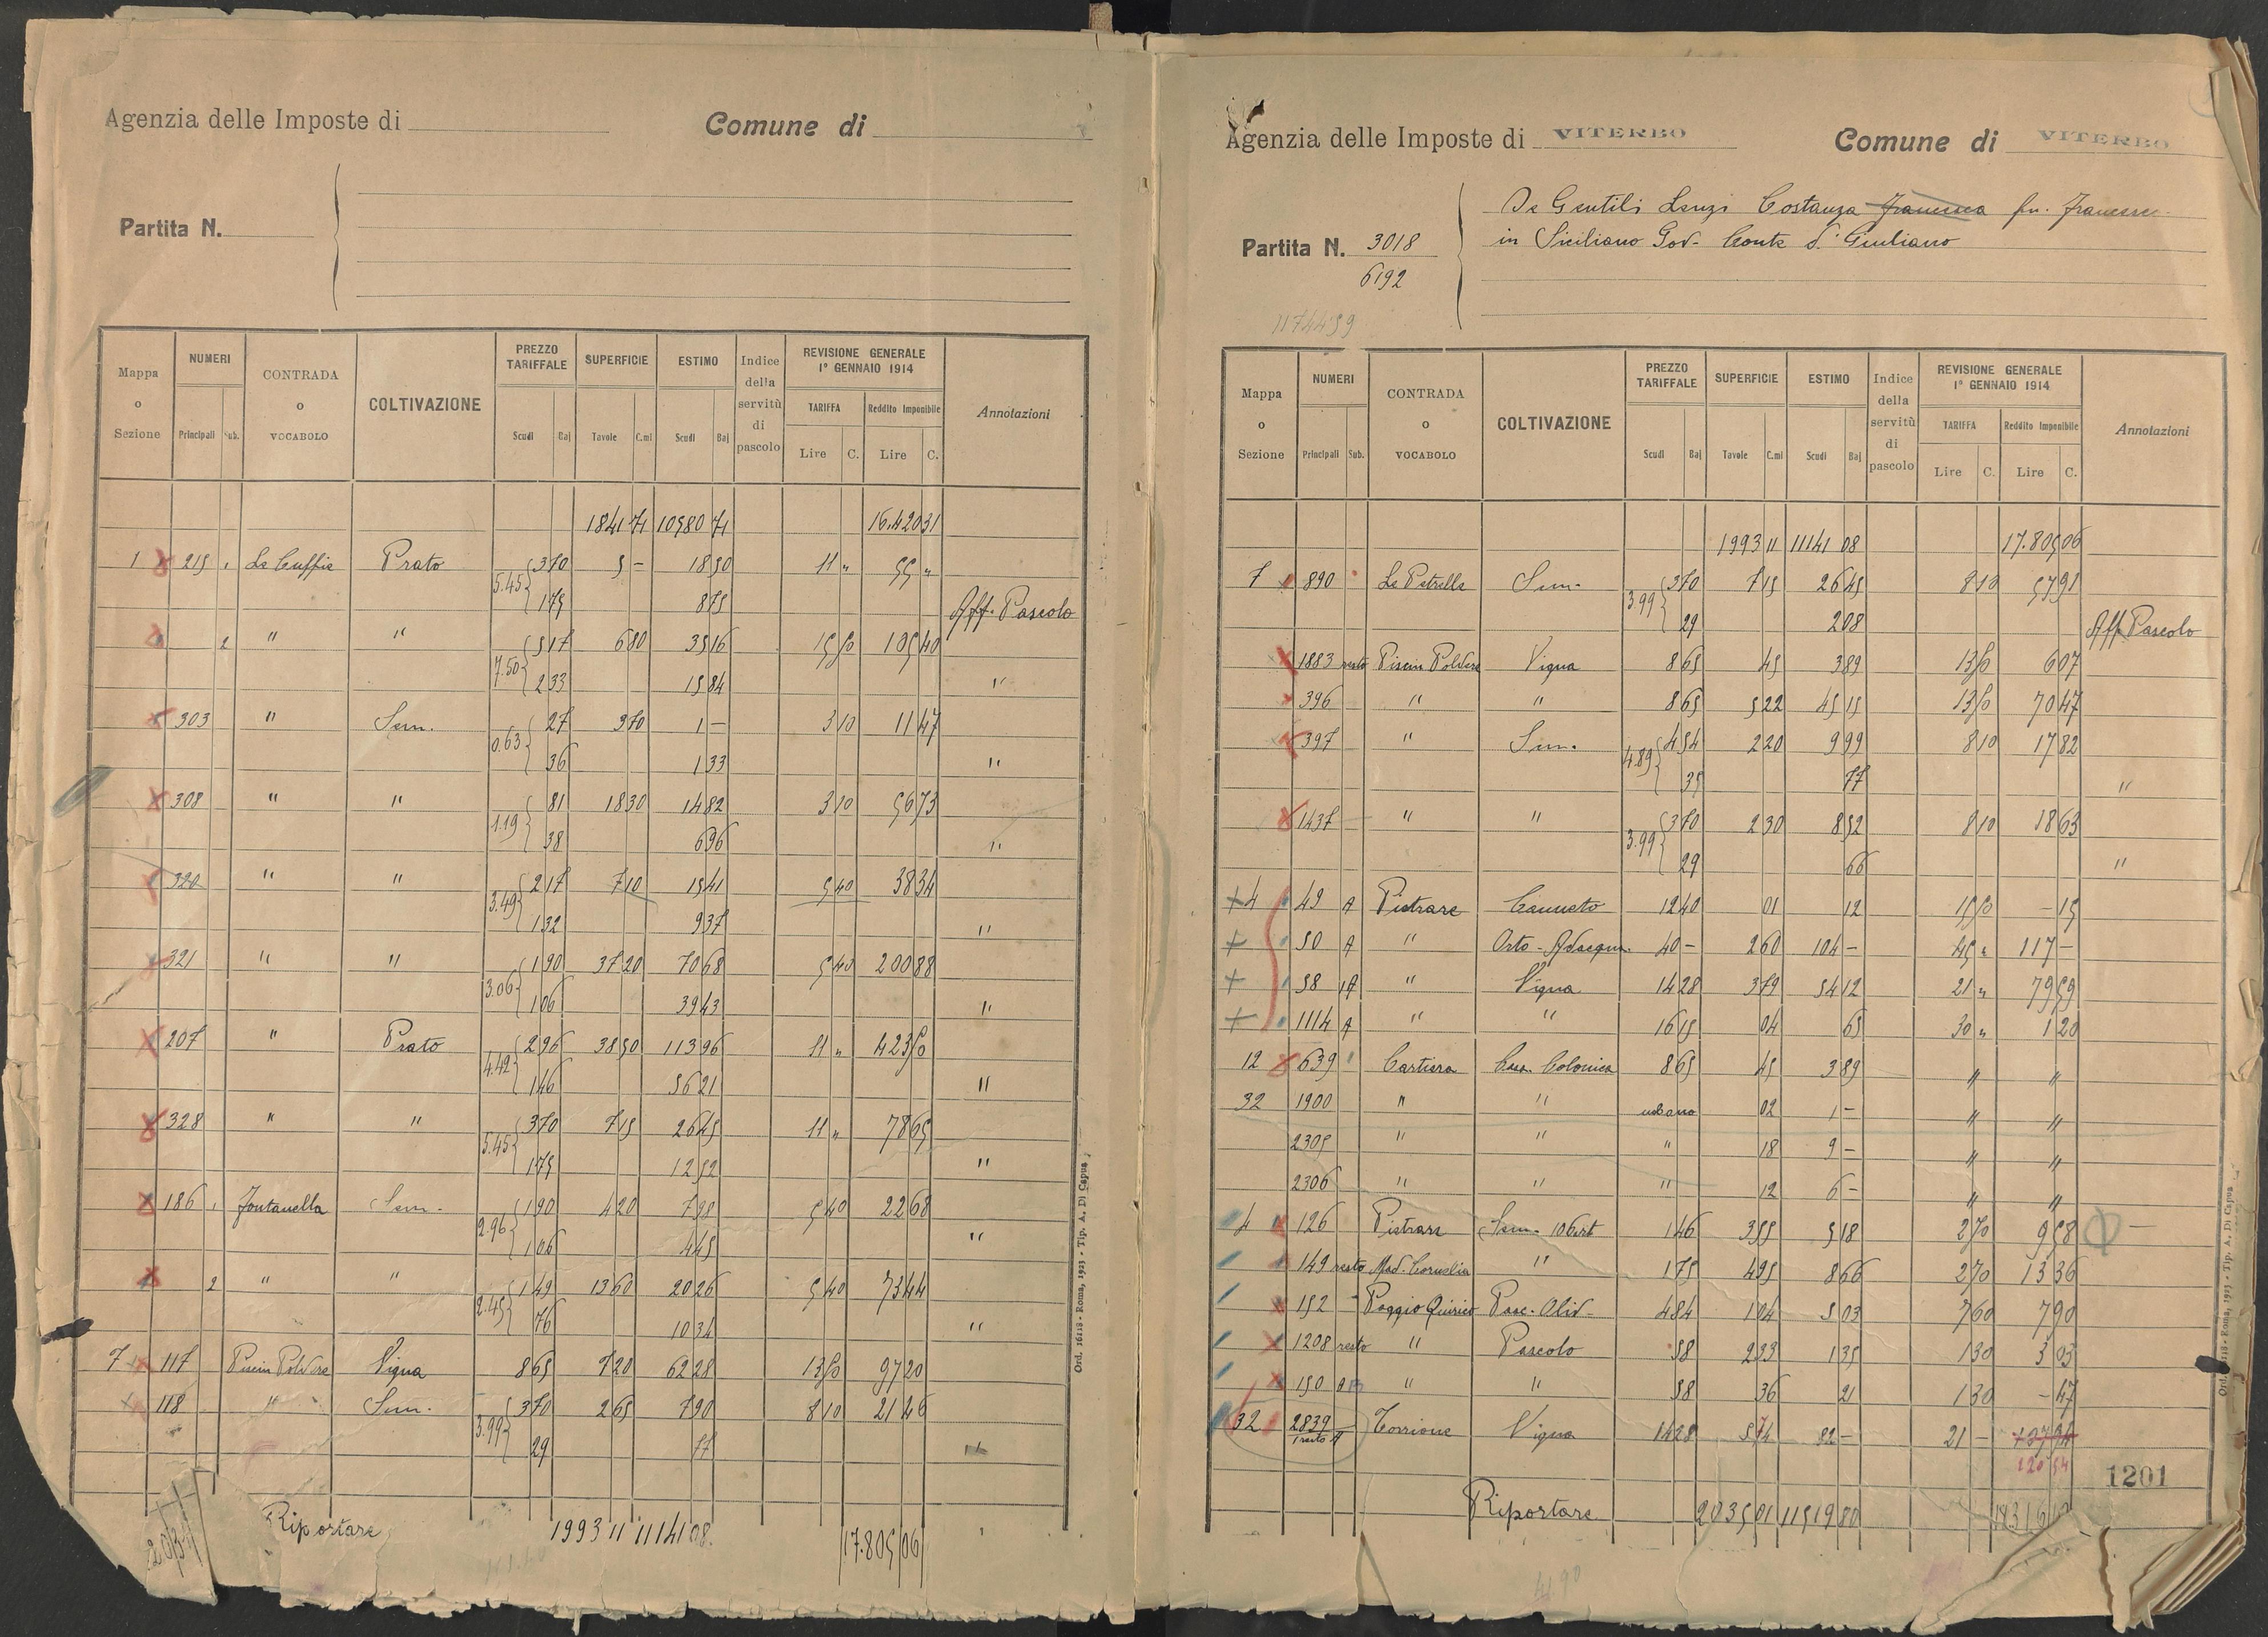 Agenzia delle Imposte di
Comune di
Partita N.
Mappa o Sezione | NUMERI Principali Sub. | CONTRADA o VOCABOLO | COLTIVAZIONE | PREZZO TARIFFALE Scudi Baj | SUPERFICIE Tavole C.mi | ESTIMO Scudi Baj | Indice della servitù di pascolo | REVISIONE GENERALE 1° GENNAIO 1914 TARIFFA Lire C. Reddito Imponibile Lire C. | Annotazioni
1841 71 10980 71 16.420 31
1 215 1 La Cuffia Prato 5.45 3 70 5 - 18 50 11 " 55 "
1 75 8 75 Aff. Pascolo
2 " " 7.50 5 17 6 80 35 16 15 50 105 40
2 33 15 84 "
303 " Sem. 0.63 27 3 70 1 - 3 10 11 47
36 1 33 "
308 " " 1.19 81 18 30 14 82 3 10 56 73
38 6 96 "
320 " " 3.49 2 17 7 10 15 41 5 40 38 34
1 32 9 37 "
321 " " 3.06 1 90 37 20 70 68 5 40 200 88
1 06 39 43 "
207 " Prato 4.42 2 96 38 50 113 96 11 " 423 50
1 46 56 21 "
328 " " 5.45 3 70 7 15 26 45 11 " 78 65
1 75 12 52 "
186 1 Fontanella Sem. 2.96 1 90 4 20 7 98 5 40 22 68
1 06 4 45 "
2 " " 2.45 1 49 13 60 20 26 5 40 73 44
76 10 34 "
7 117 Piscin Polvere Vigna 8 65 7 20 62 28 13 50 97 20
118 " Sem. 3.99 3 70 2 65 7 90 8 10 21 46
29 77 "
Riportare 1993 11 11141 08 17.805 06
Ord. 16118 - Roma, 1923 - Tip. A. Di Capua
Agenzia delle Imposte di VITERBO
Comune di VITERBO
De Gentili Lenzi Costanza Francesca fu. Francesco
Partita N. 3018
in Siciliano Gov. Conte d. Giuliano
6192
1174459
Mappa o Sezione | NUMERI Principali Sub. | CONTRADA o VOCABOLO | COLTIVAZIONE | PREZZO TARIFFALE Scudi Baj | SUPERFICIE Tavole C.mi | ESTIMO Scudi Baj | Indice della servitù di pascolo | REVISIONE GENERALE 1° GENNAIO 1914 TARIFFA Lire C. Reddito Imponibile Lire C. | Annotazioni
1993 11 11141 08 17.805 06
7 890 La Petrella Sem. 3.99 3 70 7 15 26 45 8 10 57 91
29 2 08 Aff. Pascolo
1883 resto Piscin Polvere Vigna 8 65 45 3 89 13 50 6 07
396 " " 8 65 5 22 45 15 13 50 70 47
397 " Sem. 4.89 4 54 2 20 9 99 8 10 17 82
35 77 "
1437 " " 3.99 3 70 2 30 8 52 8 10 18 63
29 66 "
4 49 A Pietrare Canneto 12 40 01 12 15 50 - 15
50 A " Orto - Adacqua. 40 - 2 60 104 - 45 " 117 -
58 A " Vigna 14 28 3 79 54 12 21 " 79 59
1114 A " " 16 15 04 65 30 " 1 20
12 639 1 Cartiera Casa Colonica 8 65 45 3 89 " "
32 1900 " " urbano 02 1 - " "
2305 " " " 18 9 - " "
2306 " " " 12 6 - " "
4 126 Pietrare Sem. 1 46 3 55 5 18 2 70 9 58
149 resto Mad. Cornelia " 1 75 4 95 8 66 2 70 13 36
152 Poggio Quirico Pasc. Oliv. 4 84 1 04 5 03 7 60 7 90
1208 resto " Pascolo 58 2 33 1 35 1 30 3 03
150 " " 58 36 21 1 30 - 47
32 2839 Torrione Vigna 14 28 5 74 82 - 21 -
120 54
1201
Riportare 2035 01 11519 80
4190
Tip. A. Di Capua